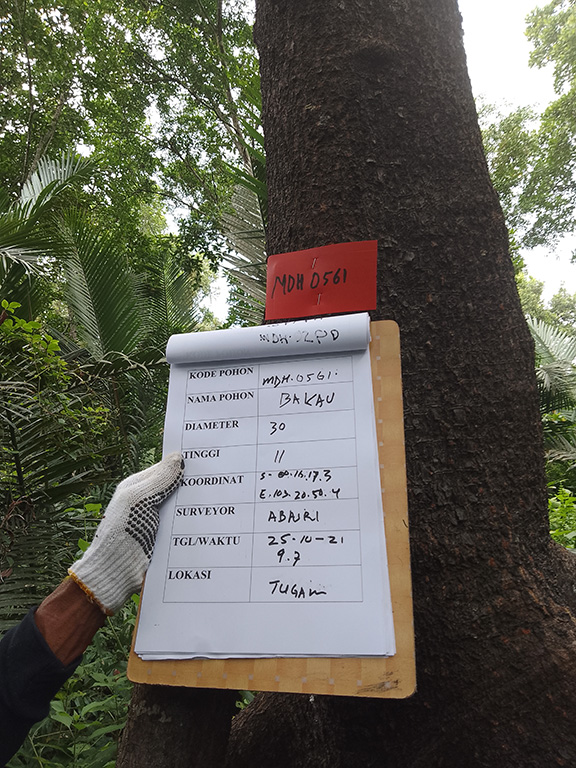 MDH 0561
KODE POHON MDH.0561.
NAMA POHON BAKAU
DIAMETER 30
TINGGI 11
KOORDINAT S-00.16.17.3
E.103.20.50.4
SURVEYOR
TGL/WAKTU 25-10-21
9.7
LOKASI